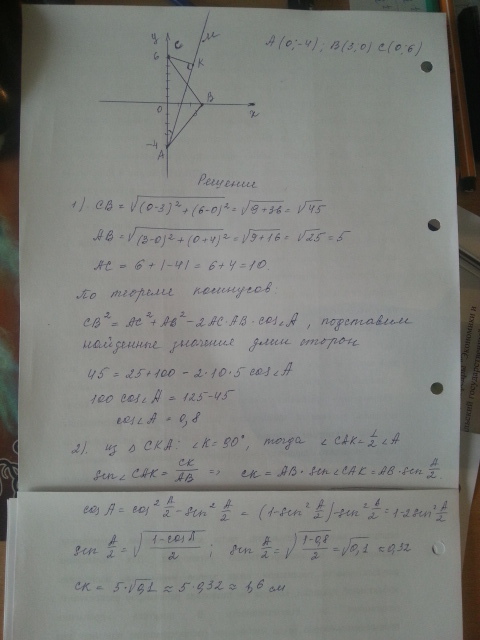 A(0;-4); B(3;0) C(0;6)
y
M
6
C
K
0
B
x
-4
A
Решение
1) CB = √(0-3)² + (6-0)² = √9+36 = √45
AB = √(3-0)² + (0+4)² = √9+16 = √25 = 5
AC = 6 + |-4| = 6+4 = 10.
По теореме косинусов.
CB² = AC² + AB² - 2AC·AB·cos∠A, подставим
найденные значение длин сторон
45 = 25+100 - 2·10·5 cos∠A
100 cos∠A = 125-45
cos∠A = 0,8
2). из ΔCKA: ∠K = 90°, тогда ∠CAK = 1/2 ∠A
sin∠CAK = CK/AB ⇒ CK = AB·sin∠CAK = AB·sin A/2.
cos A = cos² A/2 - sin² A/2 = (1-sin² A/2) - sin² A/2 = 1-2sin² A/2
sin A/2 = √(1-cosA)/2; sin A/2 = √(1-0,8)/2 = √0,1 ≈ 0,32
CK = 5·√0,1 ≈ 5·0,32 ≈ 1,6 см